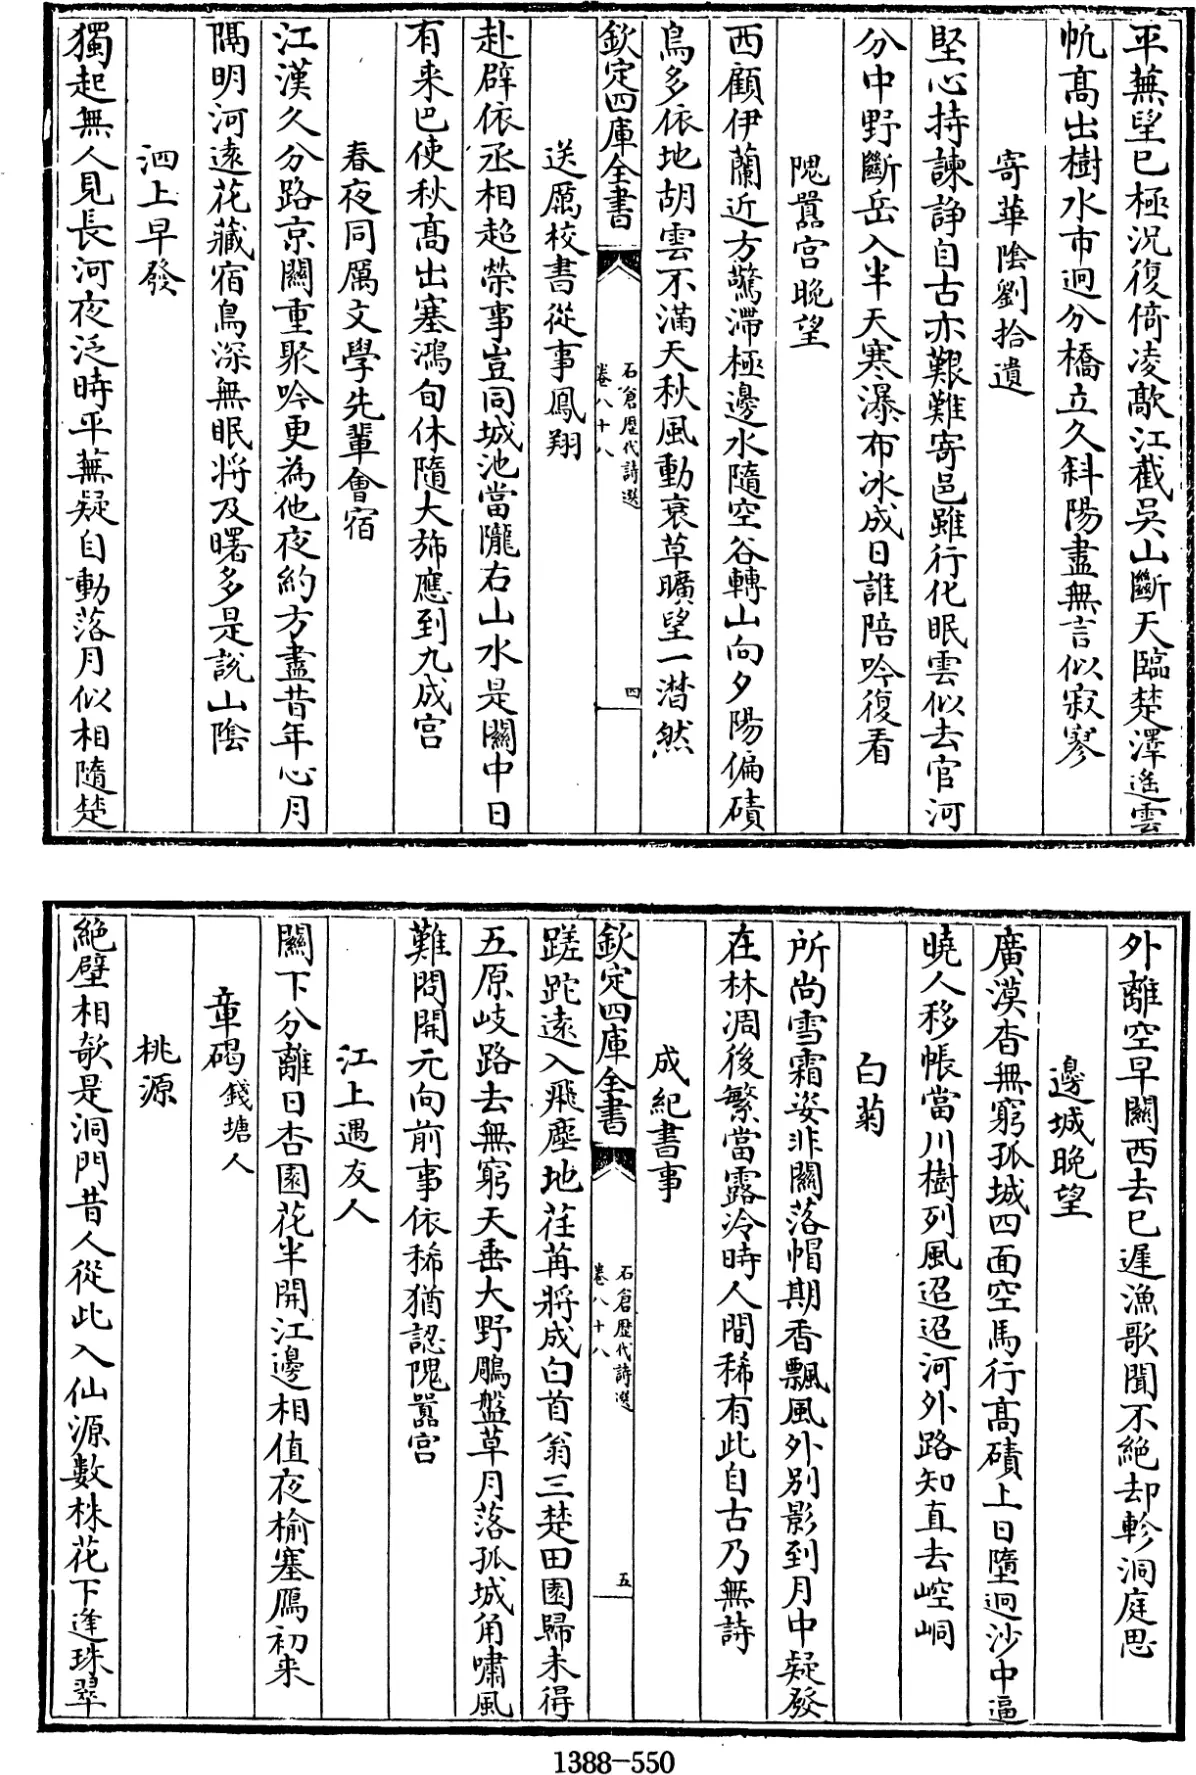 平蕪望已極況復倚凌歊江截吳山斷天臨楚澤遙雲
帆髙出樹水市迥分橋立久斜陽盡無言似寂寥
寄華隂劉拾遺
堅心持諫諍自古亦艱難寄邑雖行化眠雲似去官河
分中野斷岳入半天寒瀑布冰成日誰陪吟復看
隗囂宫晚望
西顧伊蘭近方驚滯極邊水隨空谷轉山向夕陽偏磧
鳥多依地胡雲不滿天秋風動衰草曠望一潸然
欽定四庫全書
石倉歴代詩選
卷八十八
四
送厲校書從事鳳翔
赴辟依丞相超榮事豈同城池當隴右山水是關中日
有来巴使秋髙出塞鴻旬休隨大斾應到九成宫
春夜同厲文學先輩會宿
江漢久分路京關重聚吟更為他夜約方盡昔年心月
隔明河逺花藏宿鳥深無眠將及曙多是説山隂
泗上早發
獨起無人見長河夜泛時平蕪疑自動落月似相隨楚
外離空早關西去已遲漁歌聞不絶却軫洞庭思
邊城晚望
廣漠杳無窮孤城四面空馬行髙磧上日墮迥沙中逼
曉人移帳當川樹列風迢迢河外路知直去崆峒
白菊
所尚雪霜姿非關落帽期香飄風外别影到月中疑發
在林凋後繁當露冷時人間稀有此自古乃無詩
欽定四庫全書
石倉歴代詩選
卷八十八
五
成紀書事
蹉跎逺入飛塵地荏苒將成白首翁三楚田園歸未得
五原岐路去無窮天垂大野鵰盤草月落孤城角嘯風
難問開元向前事依稀猶認隗囂宫
江上遇友人
關下分離日杏園花半開江邊相值夜榆塞鴈初来
章碣錢塘人
桃源
絶壁相欹是洞門昔人從此入仙源數株花下逢珠翠
1388-550